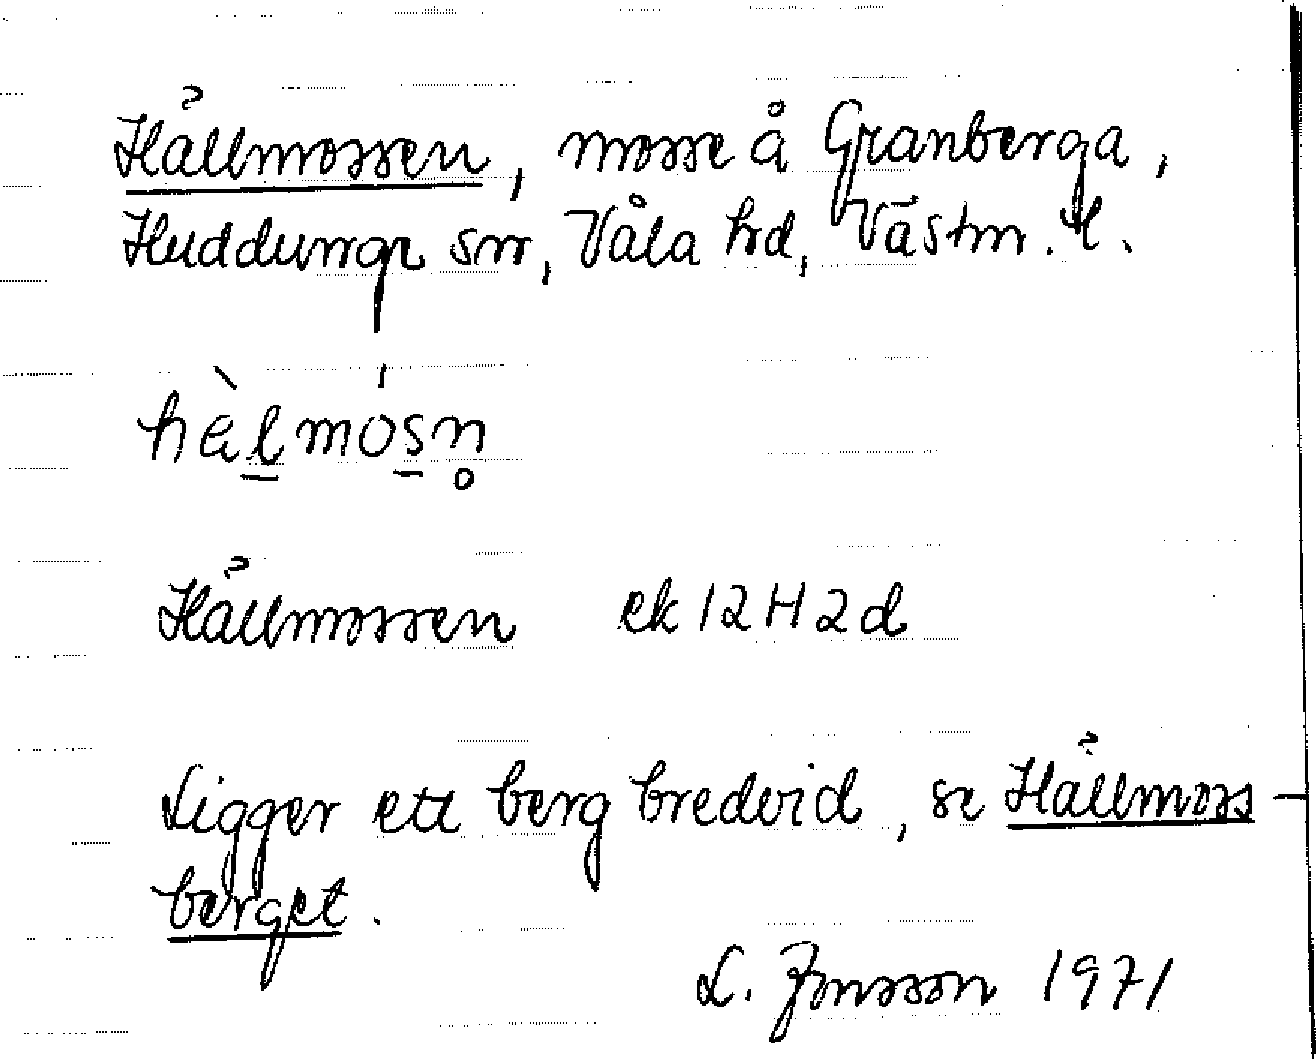 Hållmossen, mosse å Granberga,
Huddunge sn, Våla hd, Västm. l.
hàlmósn̥
Hållmossen ek 12 H 2d
Ligger ett berg bredvid, se Hållmoss-
berget.
L. Jonsson 1971